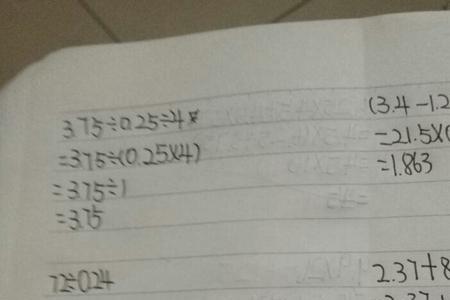 3.75÷0.25÷4
=3.75÷(0.25×4)
=3.75÷1
=3.75
72÷0.24
(3.4-1.2
=21.5×(
=1.863
2.37+8